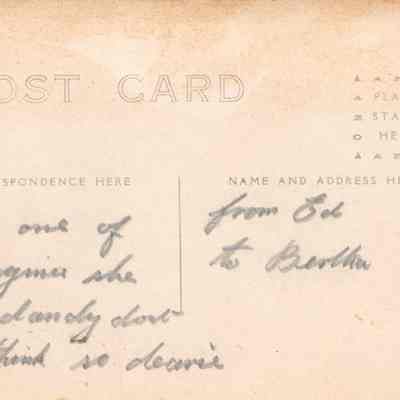 POST CARD
AZO
PLA
STA
HE
SPONDENCE HERE
NAME AND ADDRESS HE
one of
gines she
dandy dont
think so dearie
from Ed
to Bertha